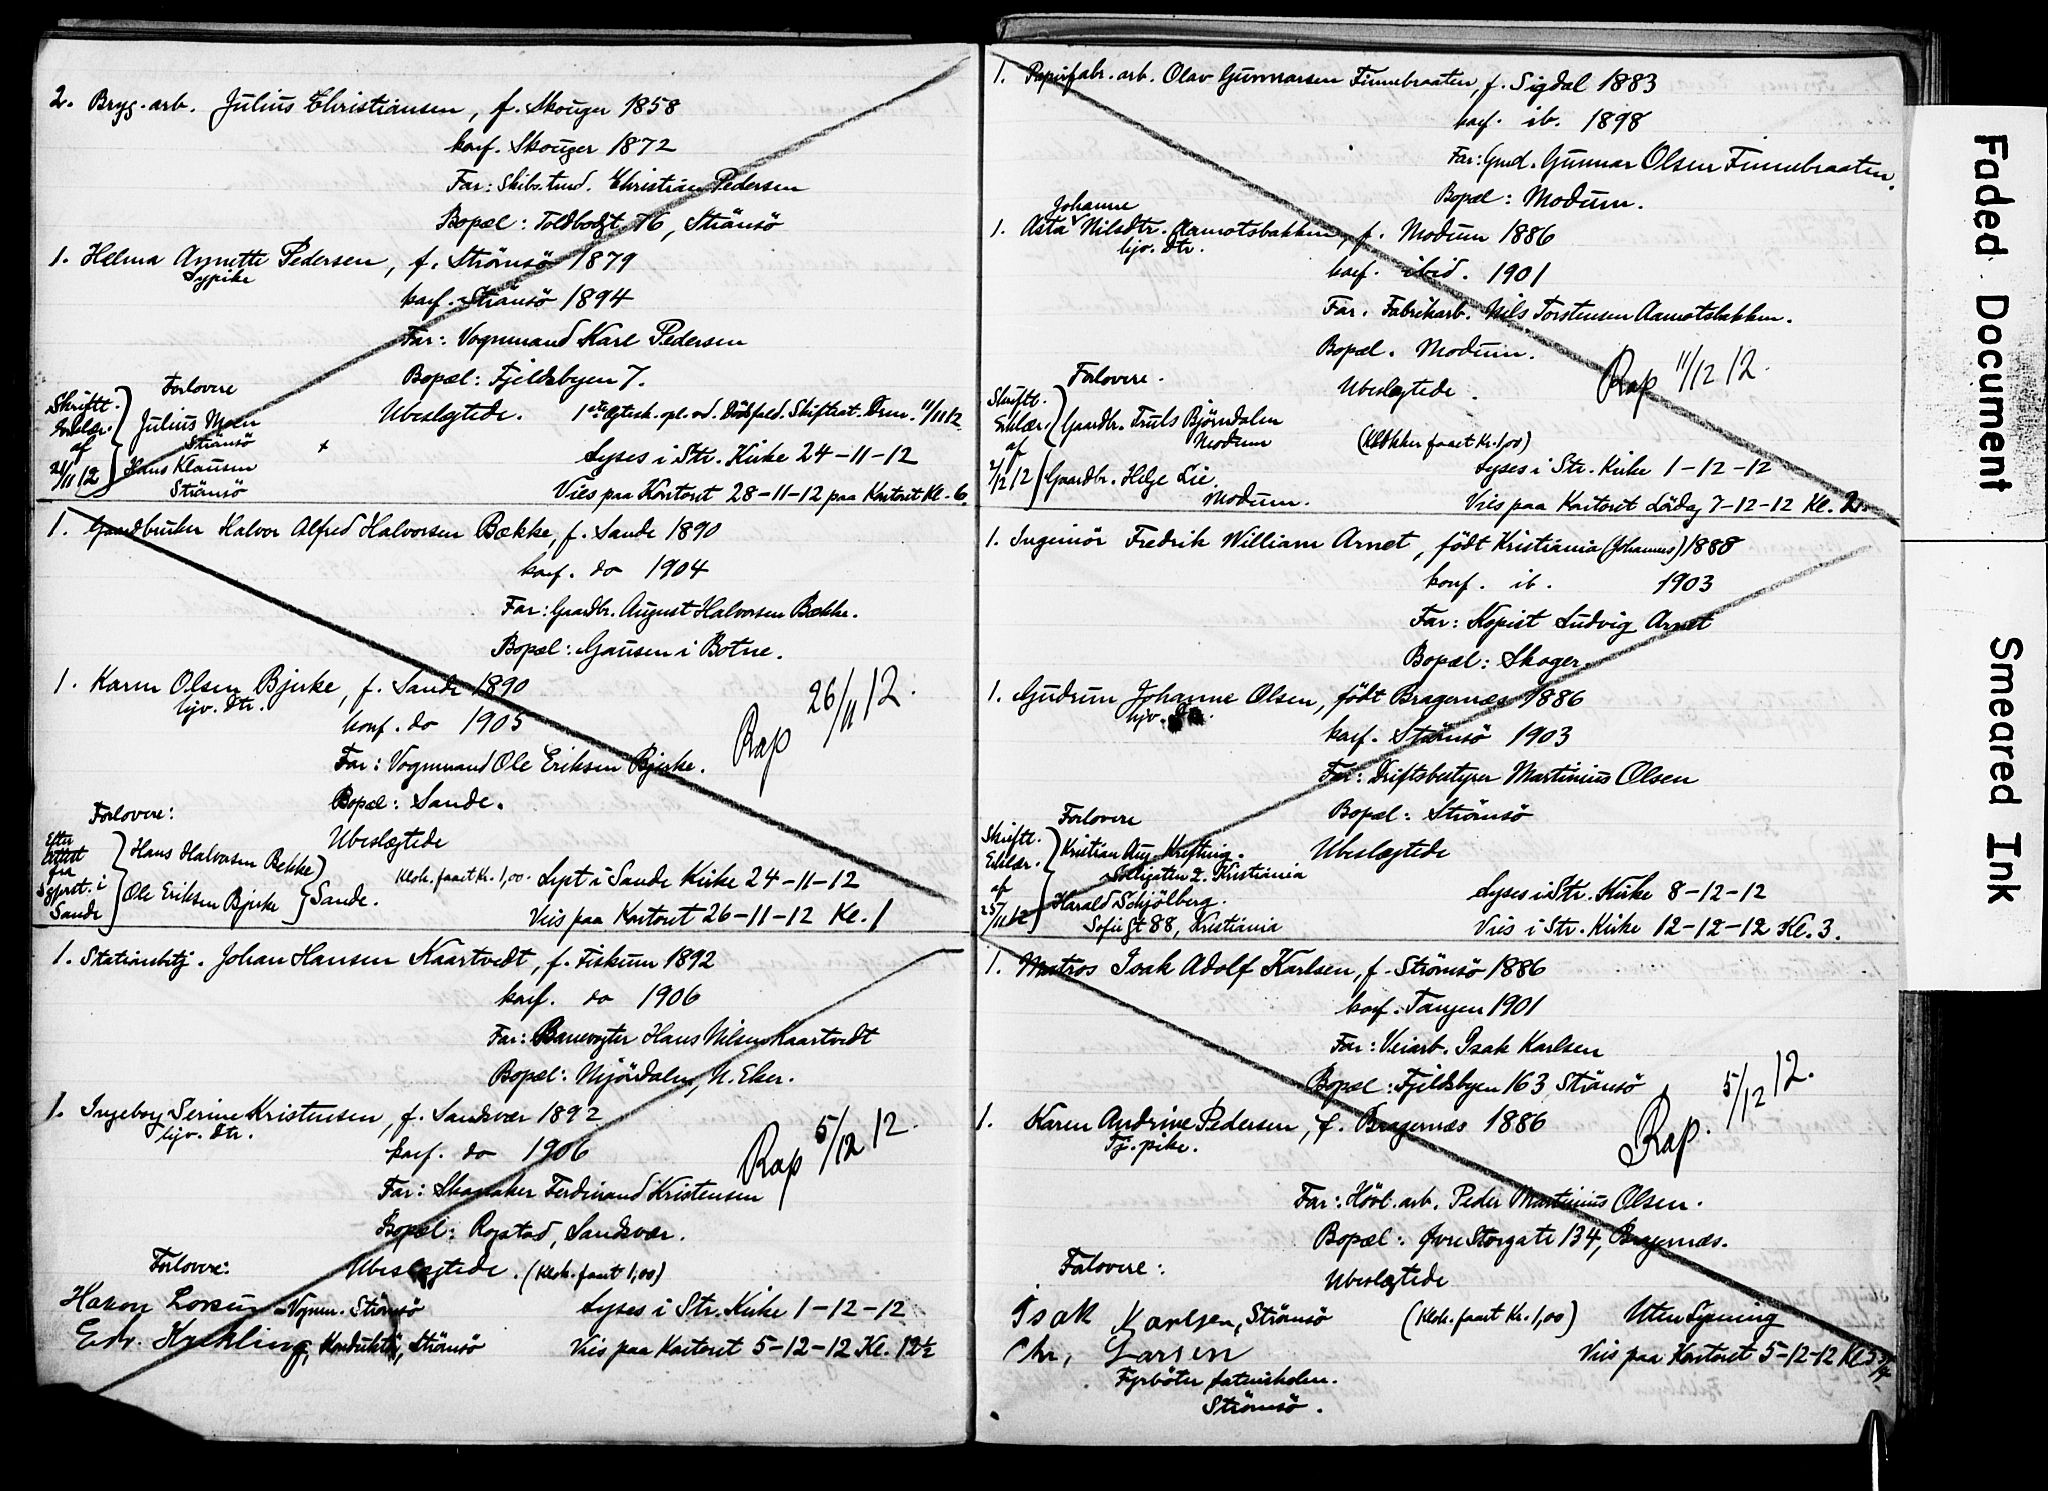 2. Bryg. arb. Julius Christiansen, f. Skouger 1858
konf. Skouger 1872
Far: Skibstmd. Christian Pedersen
Bopæl: Toldbodgt. 76, Strömsö
1. Helma Annette Pedersen, f. Strömsö 1879
Sypike
konf. Strömsö 1894
Far: Vognmand Karl Pedersen
Bopæl: Fjeldsbyen 7.
Forlovere
Ubeslægtede. 1ste Ægtesk. opl. ved. Dödsfald. Skifteat. Drm. 11/11 12.
Skriftl. Erklær. af 21/11 12
Julius Moen
Strömsö
Hans Klausen
Strömsö
Lyses i Str. Kirke 24-11-12
Vies paa Kontoret 28-11-12 paa Kontoret Kl. 6.
1. Gaardbruker Halvor Alfred Halvorsen Bække, f. Sande 1890
konf. do 1904
Far: Gaardbr. August Halvorsen Bække.
Bopæl: Gausen i Botne.
1. Karen Olsen Bjerke, f. Sande 1890
hjv. dtr.
konf. do 1905
Rap 26/11 12.
Far: Vognmand Ole Eriksen Bjerke.
Bopæl: Sande.
Forlovere:
Ubeslægtede
Efter Attest fra Sgprst. i Sande
Hans Halvorsen Bekke
Ole Eriksen Bjerke
Sande.
Klok. faaet Kr. 1,00. Lyst i Sande Kirke 24-11-12
Vies paa Kontoret 26-11-12 Kl. 1
1. Stationsbetj. Johan Hansen Kaartvedt, f. Fiskum 1892
konf. do 1906
Far: Banevogter Hans Nilsen Kaartvedt
Bopæl: Mjöndalen, N. Eker.
1. Ingeborg Serine Kristensen, f. Sandsvær 1892
hjv. dtr.
konf. do 1906
Rap 5/12 12.
Far: Skomaker Ferdinand Kristensen
Bopæl: Rogstad, Sandsvær.
Forlovere:
Ubeslægtede. (Klok. faaet 1,00)
Hakon Lorsen Vognm. Strömsö
Lyses i Str. Kirke 1-12-12
Edv. Konduktör, Strömsö
Vies paa Kontoret 5-12-12 Kl. 12½
1. Papirfabr. arb. Olav Gunnarsen Finnebraaten, f. Sigdal 1883
konf. ib. 1898
Far: Gmd. Gunnar Olsen Finnebraaten.
Bopæl: Modum.
Johanne
1. Asta Nilsdtr. Aamotsbakken, f. Modum 1886
hjv. dtr.
konf. ibid. 1901
Far. Fabrikarb. Nils Torstensen Aamotsbakken.
Bopæl. Modum.
Rap 11/12 12.
Forlovere.
Ubeslægtede.
Skriftl. Erklær. af 2/12 12
Gaardbr. Truls Björndalen
Modum
Gaardbr. Helge Lie.
Modum.
(Klokker faaet Kr. 1,00)
Lyses i Str. Kirke 1-12-12
Vies paa Kontoret Lördag 7-12-12 Kl. 2.
1. Ingeniör Fredrik William Arnet, födt Kristiania (Johannes) 1888
konf. ib. 1903
Far: Kopist Ludvig Arnet
Bopæl: Skoger.
1. Gudrun Johanne Olsen, födt Bragernæs 1886
hjv.
konf. Strömsö 1903
Far: Driftsbestyrer Martinius Olsen
Bopæl: Strömsö
Forlovere
Ubeslægtede
Skriftl. Erklær. af 25/11 12
Kristian Aug. Krefting.
Solligaten 2. Kristiania
Harald Schjölberg.
Sofies gt 88, Kristiania
Lyses i Str. Kirke 8-12-12
Vies i Str. Kirke 12-12-12 Kl. 3.
1. Matros Isak Adolf Karlsen, f. Strömsö 1886
konf. Tangen 1901
Far: Veiarb. Isak Karlsen
Bopæl: Fjeldsbyen 163, Strömsö
1. Karen Andrine Pedersen, f. Bragernæs 1886
Tj. pike.
Rap. 5/12 12.
Far: Hövl. arb. Peder Martinius Olsen.
Bopæl: Øvre Storgate 134, Bragernæs.
Forlovere:
Ubeslægtede
Isak Karlsen, Strömsö
(Klok. faaet Kr. 1,00) Uten lysning
Chr. Larsen
Vies paa Kontoret 5-12-12 Kl. 5
Fyrböter
Strömsö.
Faded Document
Smeared Ink